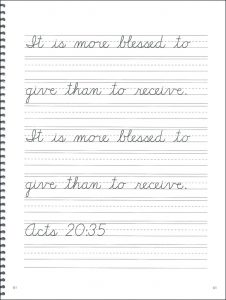 It is more blessed to
give than to receive.
It is more blessed to
give than to receive.
Acts 20:35